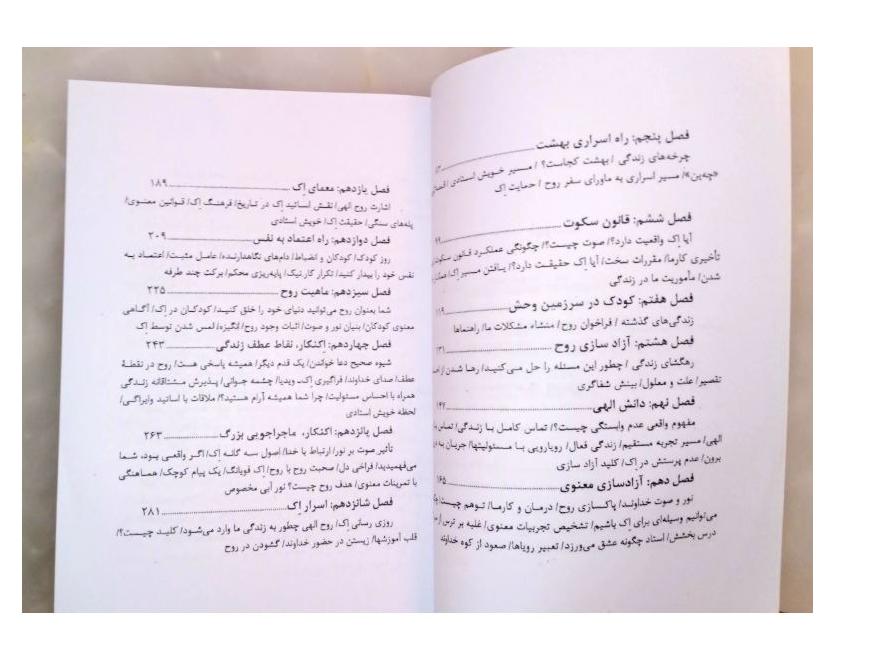 فصل پنجم: راه اسراری بهشت
چرخه‌های زندگی / بهشت کجاست؟ / مسیر خویش استادی /
«چه‌ین»/ مسیر اسراری به ماورای سفر روح / حمایت اِک
فصل ششم: قانون سکوت
آیا اِک واقعیت دارد؟/ صوت چیست؟/ چگونگی عملکرد قانون سکوت/
تأخیری کارما/ مقررات سخت/ آیا اِک حقیقت دارد؟/ یافتن مسیر اِک/
شدن/ مأموریت ما در زندگی
فصل هفتم: کودک در سرزمین وحش
زندگی‌های گذشته / فراخوان روح/ منشاء مشکلات ما/ راهنماها
فصل هشتم: آزاد سازی روح ۱۳۱
رهگشای زندگی / چطور این مسئله را حل می‌کنید/ رها شدن از
تقصیر/ علت و معلول/ بینش شفاگری
فصل نهم: دانش الهی ۱۴۲
مفهوم واقعی عدم وابستگی چیست؟/ تماس کامل با زندگی/ تماس با
الهی/ مسیر تجربه مستقیم/ زندگی فعال/ رویارویی با مسئولیتها/ جریان به
برون/ عدم پرستش در اِک/ کلید آزاد سازی
فصل دهم: آزادسازی معنوی ۱۶۵
نور و صوت خداوند/ پاکسازی روح/ درمان و کارما/ توهم چیست؟/
می‌توانیم وسیله‌ای برای اِک باشیم/ تشخیص تجربیات معنوی/ غلبه بر ترس /
درس بخشش/ استاد چگونه عشق می‌ورزد/ تعبیر رویاها/ صعود از کوه خداوند
فصل یازدهم: معمای اِک ۱۸۹
اشارت روح الهی/ نقش اساتید اِک در تاریخ/ فرهنگ اِک/ قوانین معنوی/
پله‌های سنگی/ حقیقت اِک/ خویش استادی
فصل دوازدهم: راه اعتماد به نفس ۲۰۹
روز کودک/ کودکان و انضباط/ دام‌های نگاهدارنده/ عامل مثبت/ اعتماد به
نفس خود را بیدار کنید/ تکرار کار نیک/ پایه‌ریزی محکم/ برکت چند طرفه
فصل سیزدهم: ماهیت روح ۲۲۵
شما بعنوان روح می‌توانید دنیای خود را خلق کنید/ کودکان در اِک/ آگاهی
معنوی کودکان/ بنیان نور و صوت/ اثبات وجود روح/ انگیزه/ لمس شدن توسط اِک
فصل چهاردهم: اکنکار، نقاط عطف زندگی ۲۴۳
شیوه صحیح دعا خواندن/ یک قدم دیگر/ همیشه پاسخی هست/ روح در نقطهٔ
عطف/ صدای خداوند/ فراگیری اِک ویدیا/ چشمه جوانی/ پذیرش مشتاقانه زندگی
همراه با احساس مسئولیت/ چرا شما همیشه آرام هستید؟/ ملاقات با اساتید وایراگی/
لحظه خویش استادی
فصل پانزدهم: اکنکار، ماجراجویی بزرگ ۲۶۳
تأثیر صوت بر نور/ ارتباط با خدا/ اصول سه گانه اِک/ اگر واقعی بود، شما
می‌فهمیدید/ فراخی دل/ صحبت روح با روح/ اِک فوبانگ/ یک پیام کوچک/ هماهنگی
با تمرینات معنوی/ هدف روح چیست؟ نور آبی مخصوص
فصل شانزدهم: اسرار اِک ۲۸۱
روزی رسانی اِک/ روح الهی چطور به زندگی ما وارد می‌شود/ کلید چیست؟/
قلب آموزشها/ زیستن در حضور خداوند/ گشودن در روح